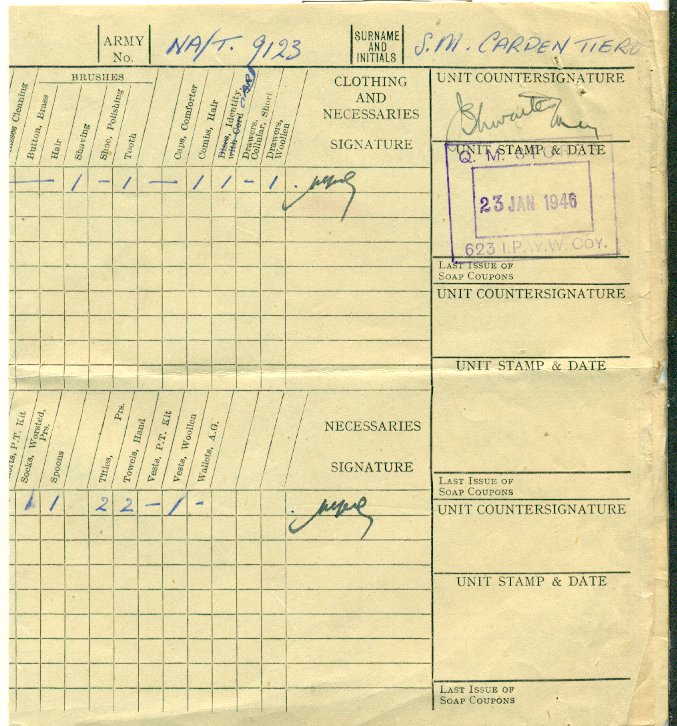 ARMY No. NA/T. 9123 SURNAME AND INITIALS S.M. CARDENTIERO
BRUSHES
Cleaning
Button, Brass
Hair
Shaving
Shoe, Polishing
Tooth
Caps, Comforter
Combs, Hair
Discs, Identity, with Cord CARD
Drawers, Cellular, Short
Drawers, Woollen
CLOTHING AND NECESSARIES
SIGNATURE
UNIT COUNTERSIGNATURE
UNIT STAMP & DATE
— — 1 — 1 — 1 1 — 1
Q. M.
23 JAN 1946
623 I.P.W.W. COY.
LAST ISSUE OF
SOAP COUPONS
UNIT COUNTERSIGNATURE
UNIT STAMP & DATE
P.T. Kit
Socks, Worsted, Prs.
Spoons
Titles, Prs.
Towels, Hand
Vests, P.T. Kit
Vests, Woollen
Wallets, A.G.
NECESSARIES
SIGNATURE
LAST ISSUE OF
SOAP COUPONS
1 1 2 2 — 1 -
UNIT COUNTERSIGNATURE
UNIT STAMP & DATE
LAST ISSUE OF
SOAP COUPONS